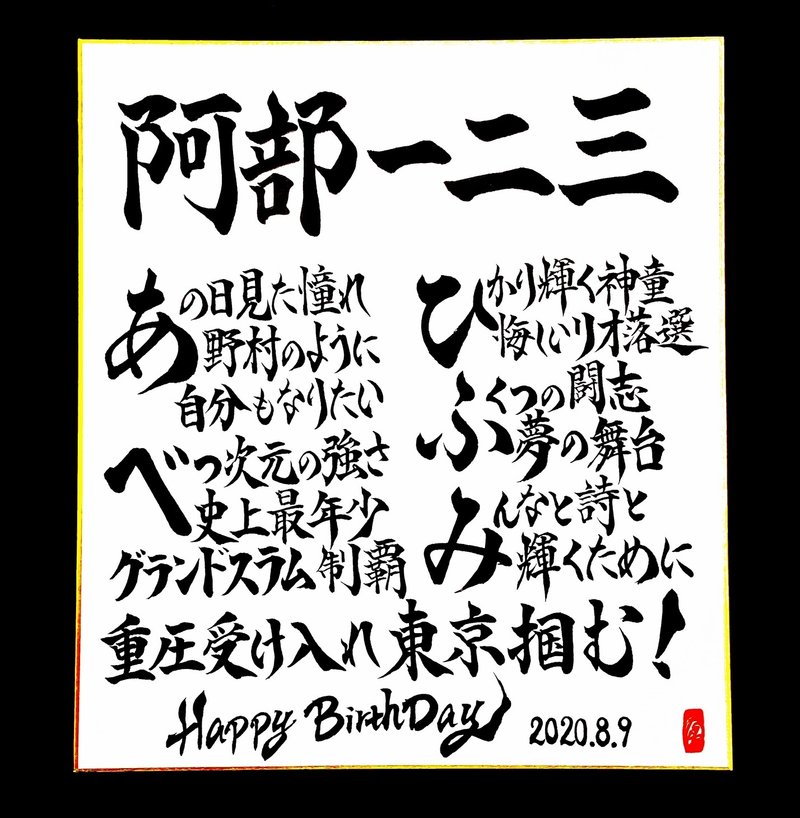 阿部一二三
あの日見た憧れ
野村のように
自分もなりたい
べつ次元の強さ
史上最年少
グランドスラム制覇
ひかり輝く神童
悔しいリオ落選
ふくつの闘志
夢の舞台
みんなと詩と
輝くために
重圧受け入れ東京掴む!
Happy BirthDay
2020.8.9